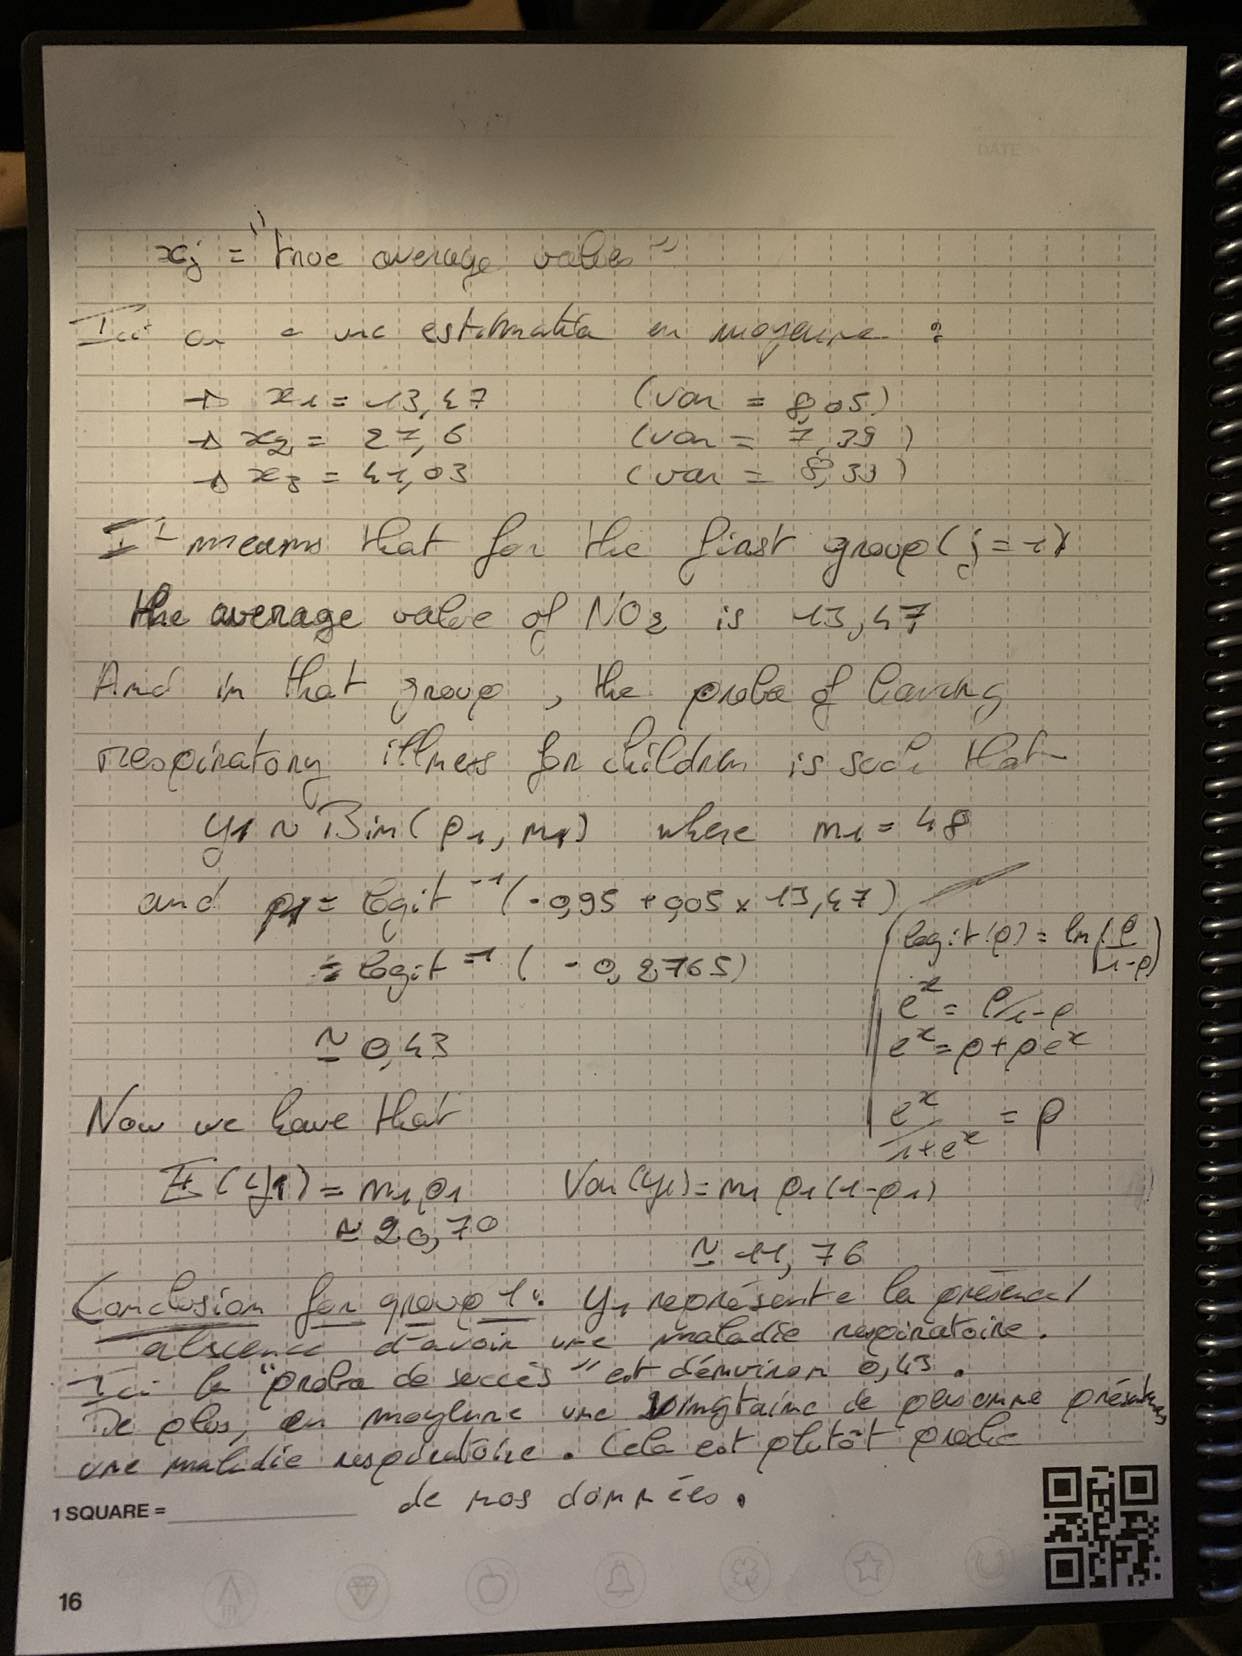 DATE
xj = "true average value"
Ici on a une estimation en moyenne :
→ x1 = 13,47 (var = 8,05)
→ x2 = 27,6 (var = 7,39)
→ x3 = 41,03 (var = 8,39)
It means that for the first group (j=1)
the average value of NO2 is 13,47
And in that group, the proba of having
respiratory illness for children is such that
y1 ~ Bin(p1, n1) where n1 = 48
and p1 = logit⁻¹(-0,95 + 0,05 × 13,47)
= logit⁻¹(-0,2765)
≃ 0,43
logit(p) = ln(p/1-p)
e^x = p/1-p
e^x = p + pe^x
e^x/1+e^x = p
Now we have that
E(y1) = n1 p1 Var(y1) = n1 p1(1-p1)
≃ 20,70 ≃ 11,76
Conclusion for group 1 : y1 représente la présence/
abscence d'avoir une maladie respiratoire.
Ici la "proba de succès" est d'environ 0,43.
De plus, en moyenne une vingtaine de personne présentes
une maladie respiratoire. Cela est plutôt proche
de nos données.
1 SQUARE =
16